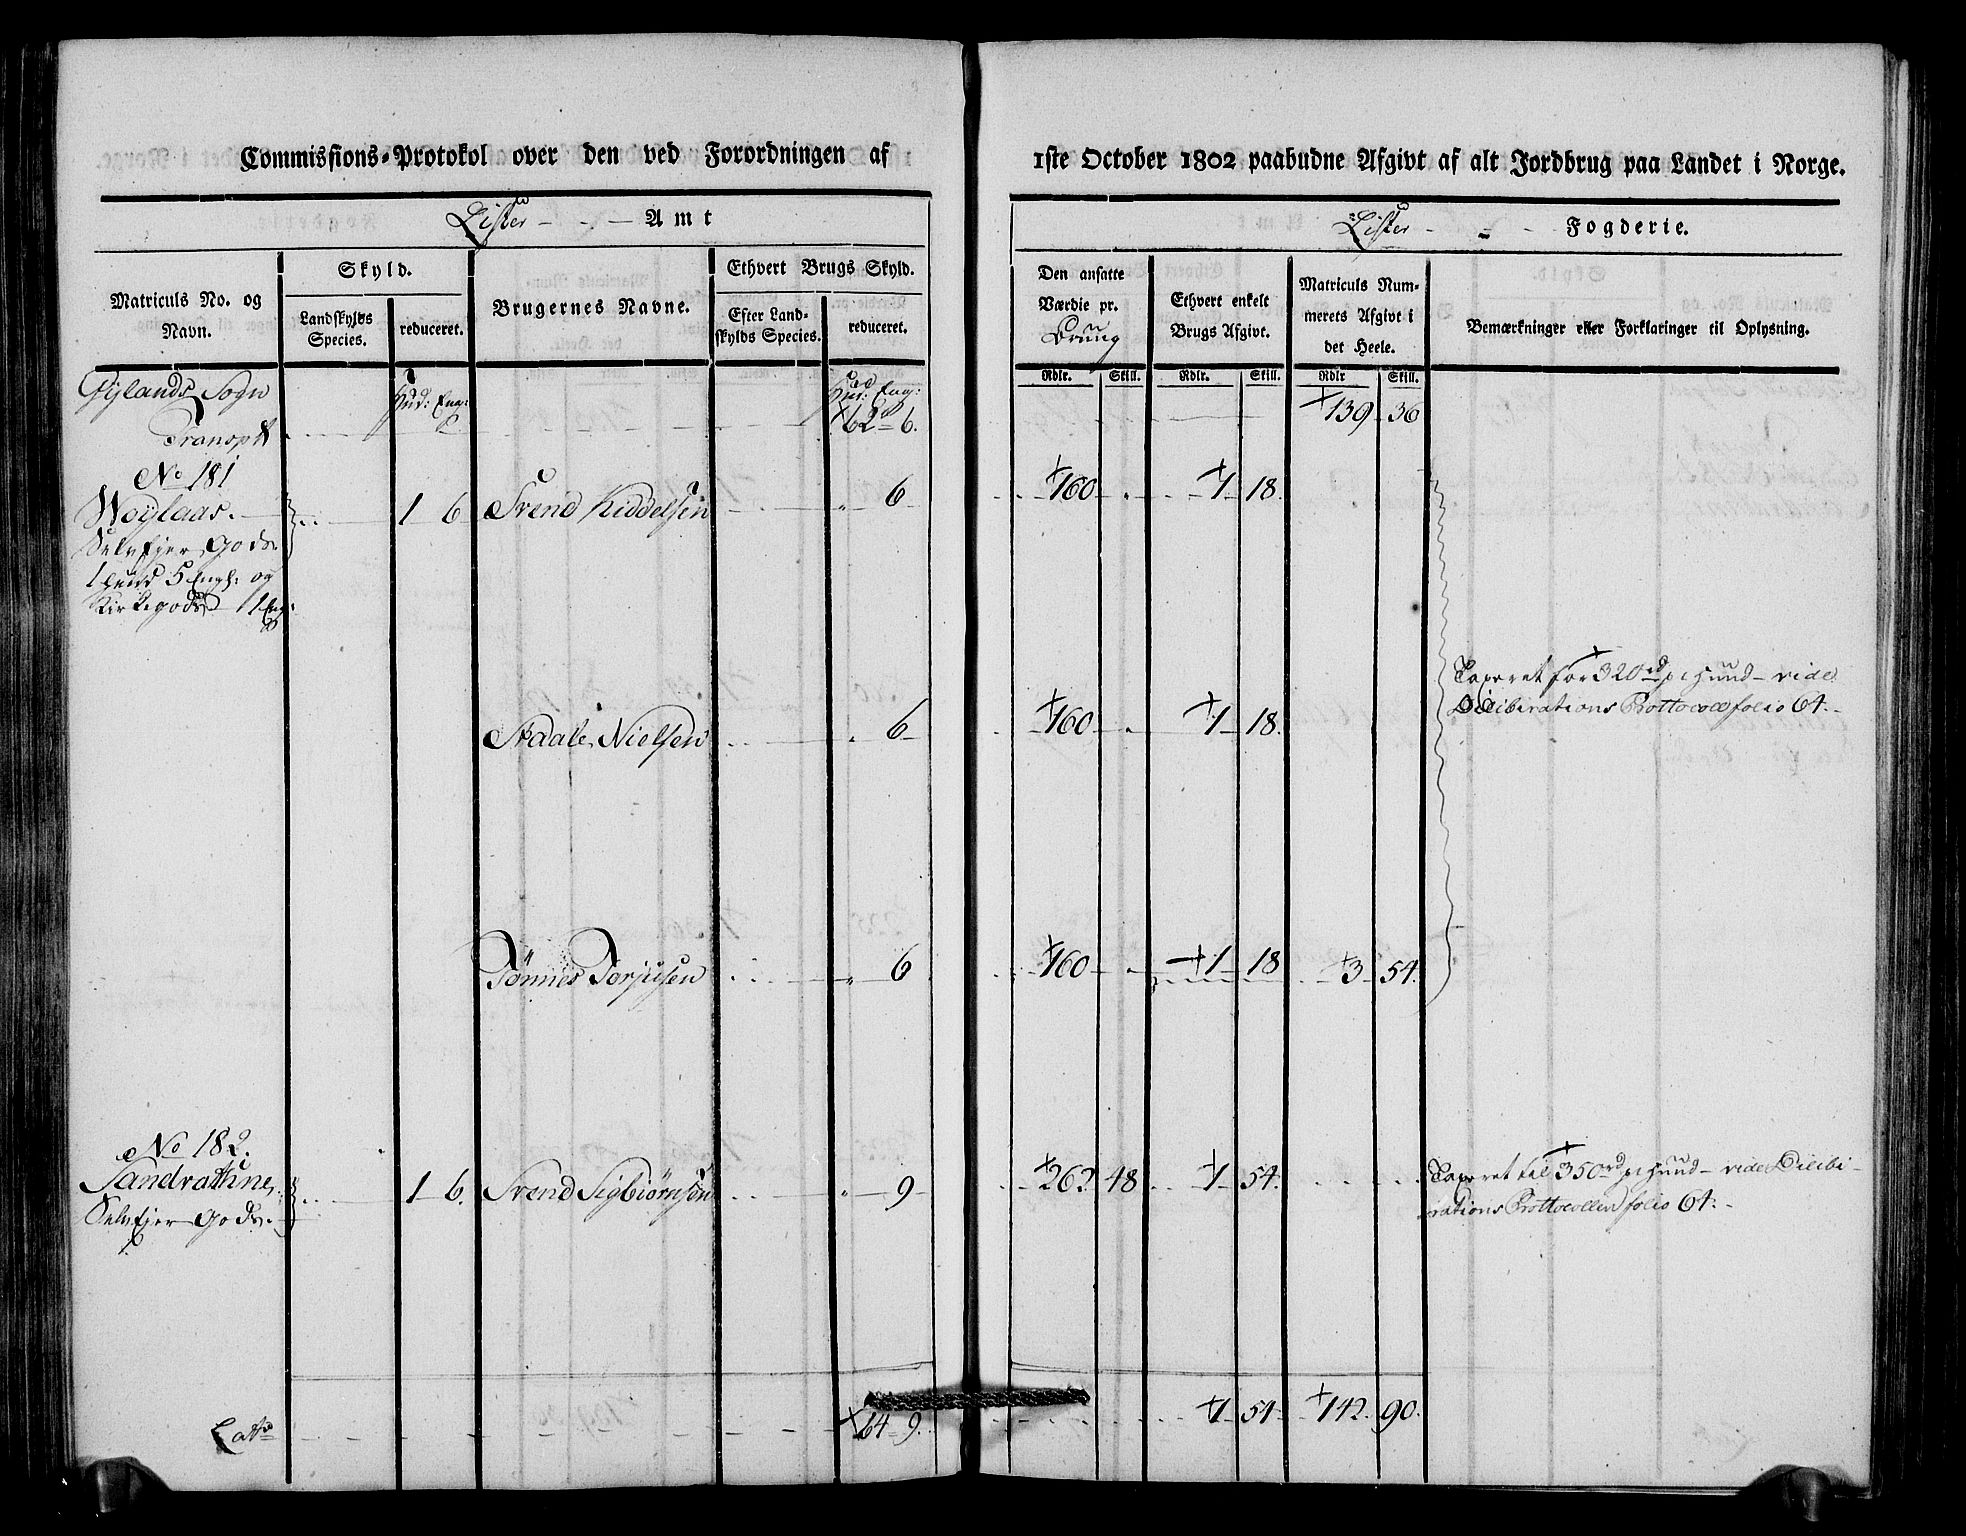 Commissions-Protokol over den ved Forordningen af
Lister - - - Amt
Matriculs No. og Navn.
Skyld.
Landskylds Species.
reduceret.
Brugernes Navne.
Ethvert Brugs Skyld.
Efter Landskylds Species.
reduceret.
Gylands Sogn
Hud: Eng:
Hud: Eng:
Transpt
62 - 6.
No 181
Svend Kiddelsen 6
1 6
Selvejer Gods
1 Hud 5 Engl: og
Kirkegods 1 Eng:
Staale Nielsen 6
Tönnes Torjusen 6
No 182.
1 6. Svend Sigbiörnsen 9
Selvejer Gods.
Lats 64 - 9.
1ste October 1802 paabudne Afgivt af alt Jordbrug paa Landet i Norge.
Lister - - - Fogderie.
Den ansatte Værdie pr. Brug
Ethvert enkelt Brugs Afgivt.
Matriculs Nummerets Afgivt i det Heele.
Bemærkninger eller Forklaringer til Oplysning.
Rdlr. Skill. Rdlr. Skill. Rdlr Skill.
139 - 36
160 - 1 18.
Taxeret for 320 rd pr Huud - vide
Dilibirations Prottocol folio 64. -
160 - 1 18.
160 - 1 18 3 54.
262 48 1 54.
Taxeret til 350 rd pr Huud - vide Dilibi-
rations Prottocollen folio 64. -
1 54 142 90.